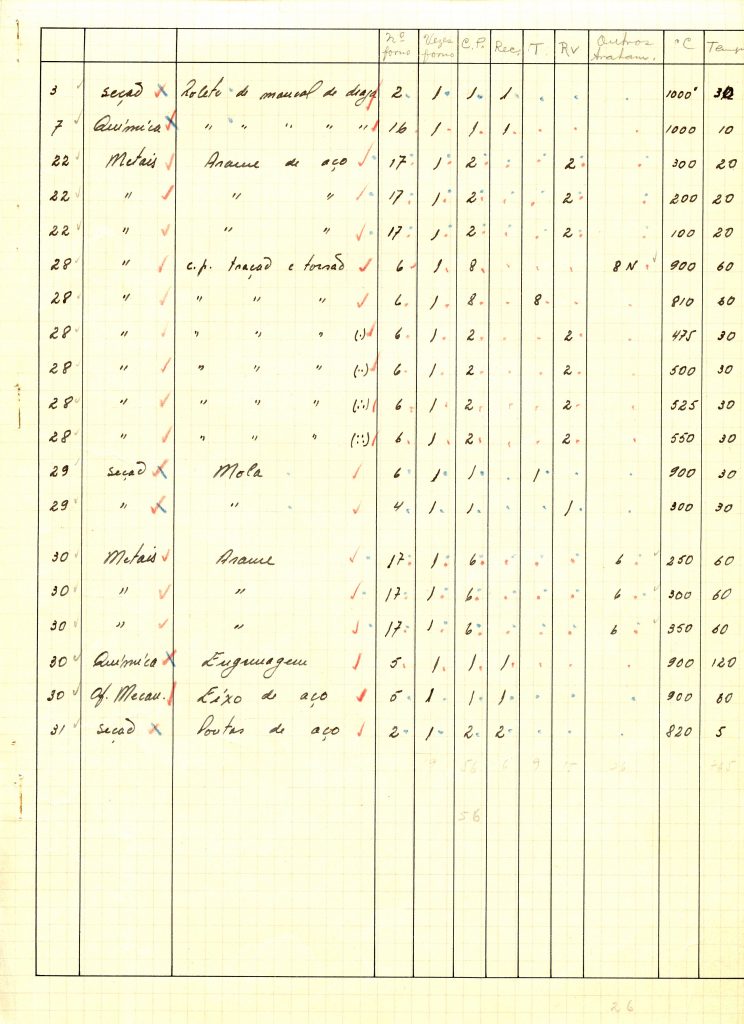 Nº forno Vezes forno C.P. Rec. T. Rv Outros tratam. °C Temp
3 seção Rolete de mancal de draga 2 1 1 1 1000° 30
7 Química " " " " " 16 1 1 1 1000 10
22 Metais Arame de aço 17 1 2 2 300 20
22 " " " 17 1 2 2 200 20
22 " " " 17 1 2 2 100 20
28 " c.p. tração e torsão 6 1 8 8 N 900 60
28 " " " " 6 1 8 8 810 60
28 " " " " (·) 6 1 2 2 475 30
28 " " " " (··) 6 1 2 2 500 30
28 " " " " (∴) 6 1 2 2 525 30
28 " " " " (::) 6 1 2 2 550 30
29 seção Mola 6 1 1 1 900 30
29 " " 4 1 1 1 300 30
30 Metais Arame 17 1 6 6 250 60
30 " " 17 1 6 6 300 60
30 " " 17 1 6 6 350 60
30 Química Engrenagem 5 1 1 1 900 120
30 Of. Mecan. Eixo de aço 5 1 1 1 900 60
31 seção Pontas de aço 2 1 2 2 820 5
56 6 9
56
26